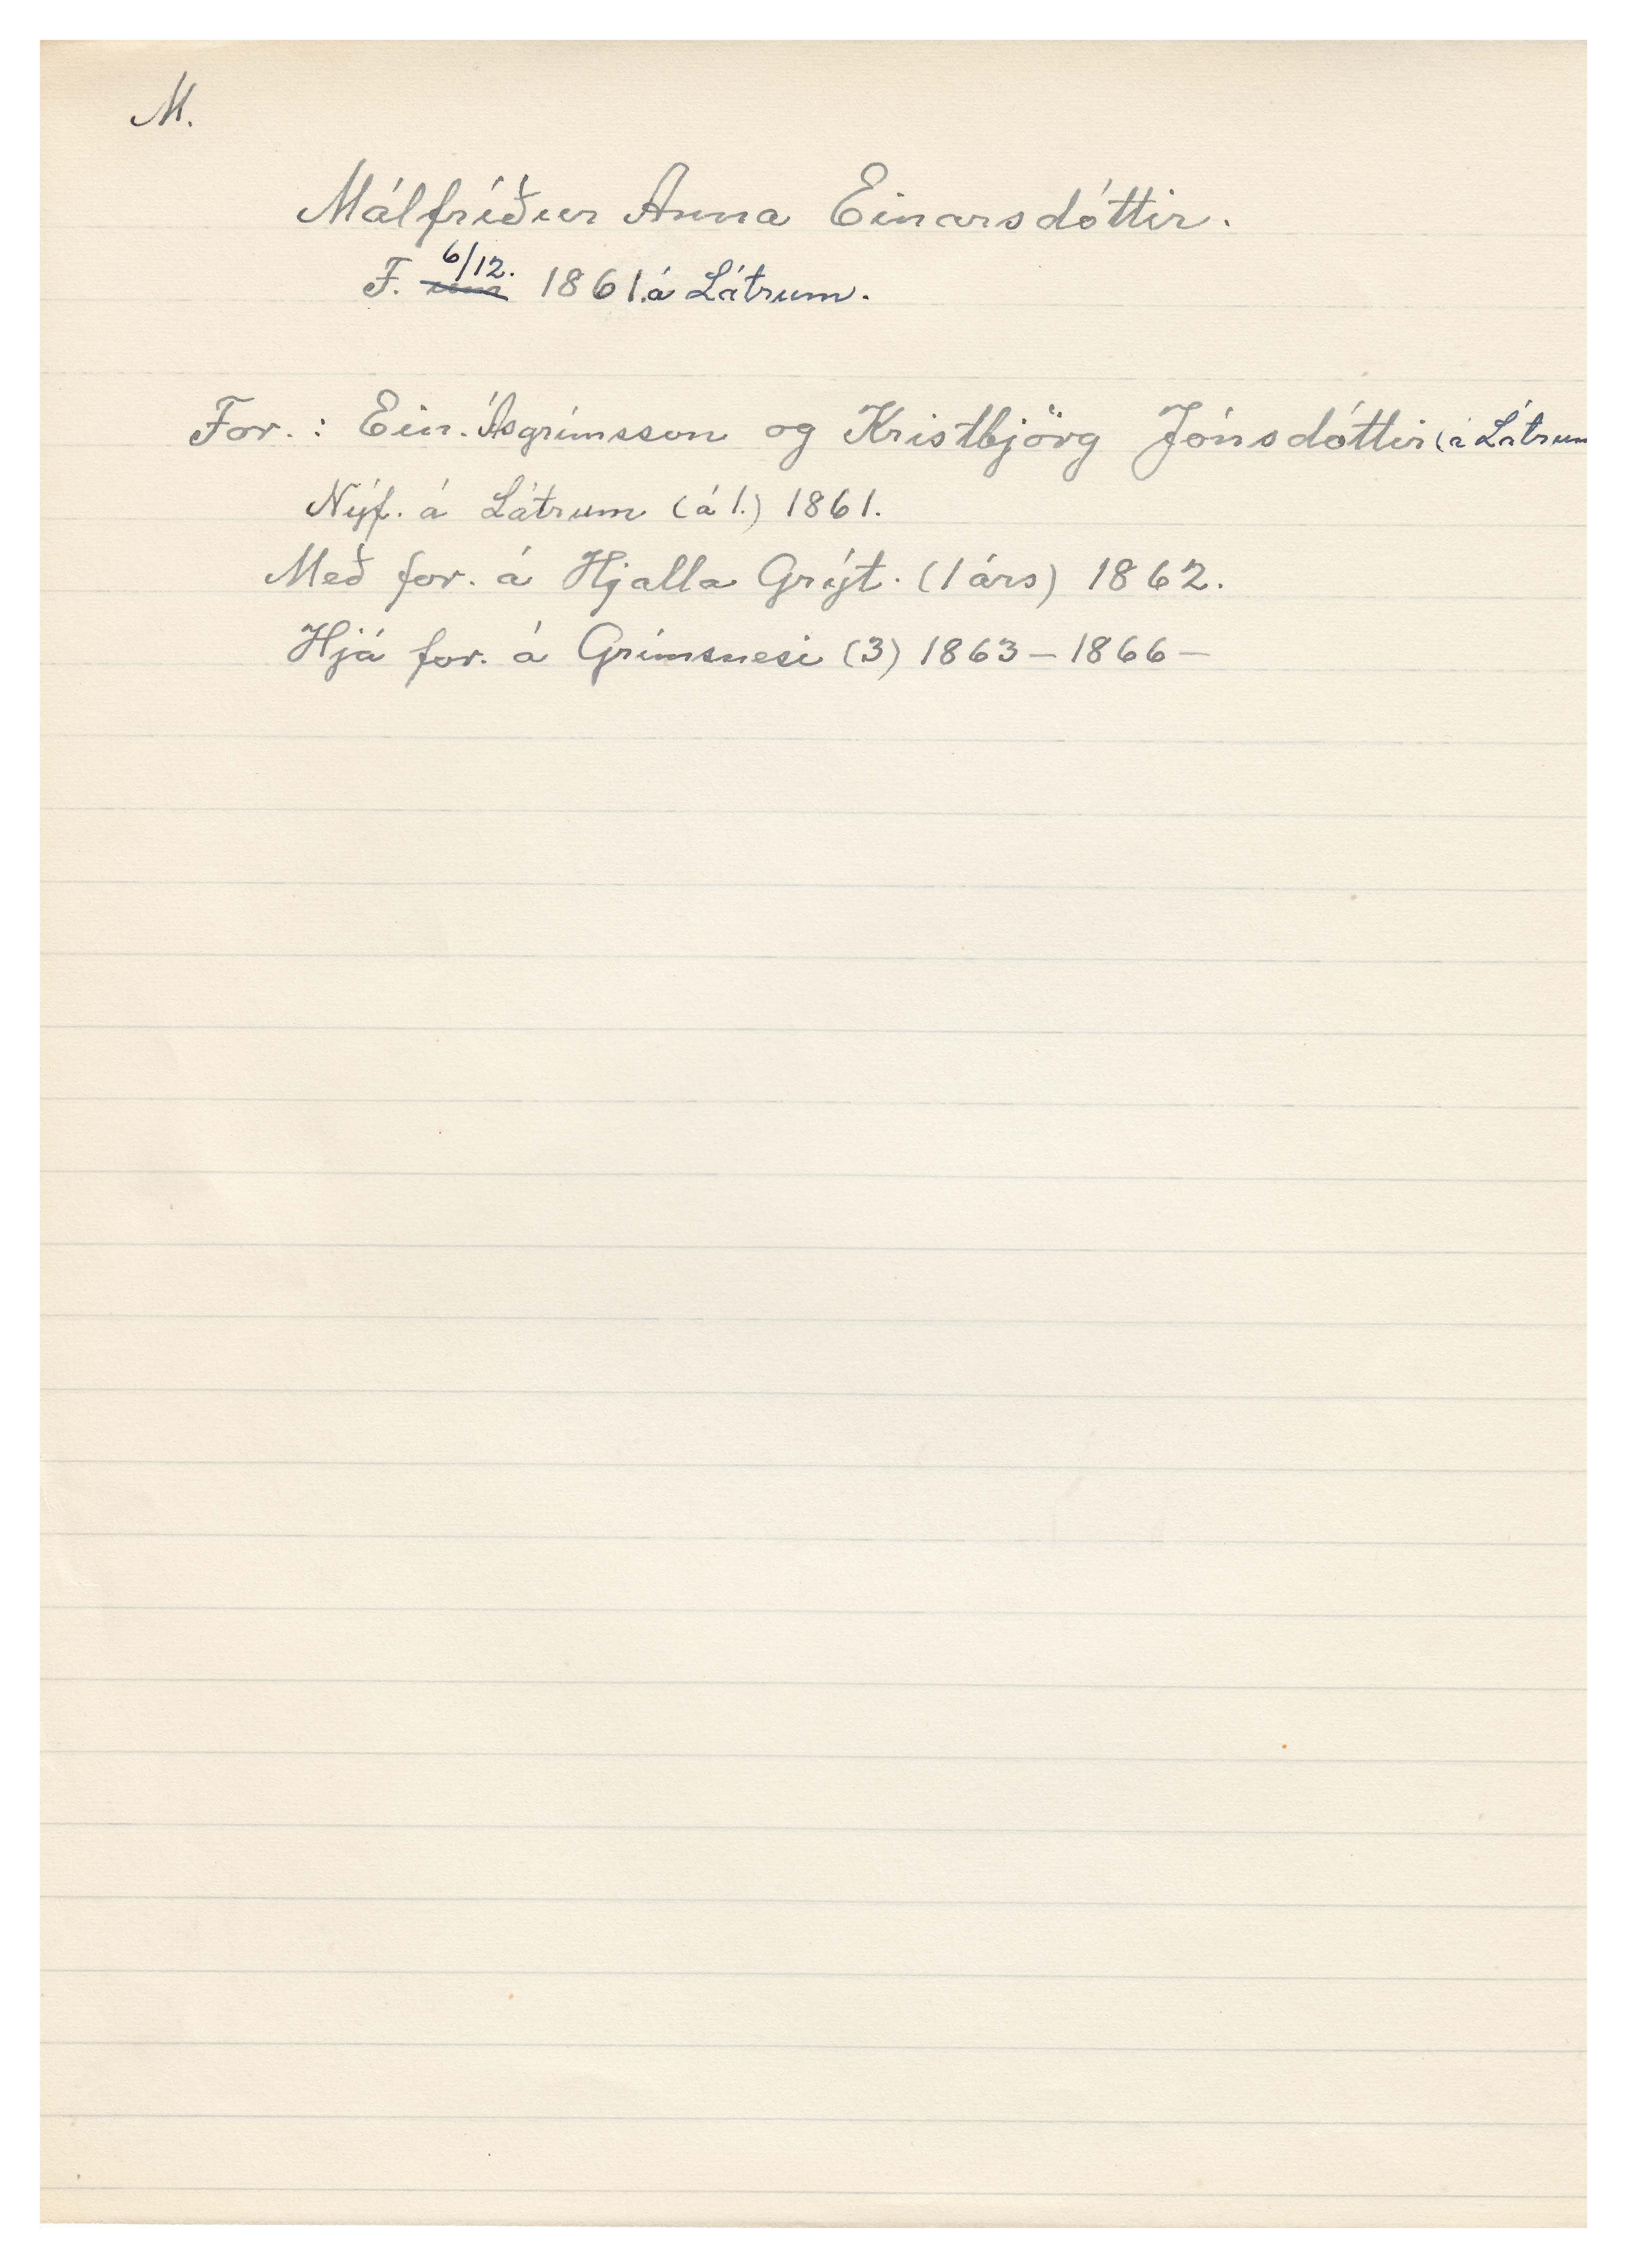 M.
Málfríður Anna Einarsdóttir.
F. 6/12. 1861 á Látrum.
For.: Ein. Ásgrímsson og Kristbjörg Jónsdóttir (á Látrum
Nýf. á Látrum (á 1.) 1861.
Með for. á Hjalla Grýt. (1 árs) 1862.
Hjá for. á Grímsnesi (3) 1863 – 1866 –